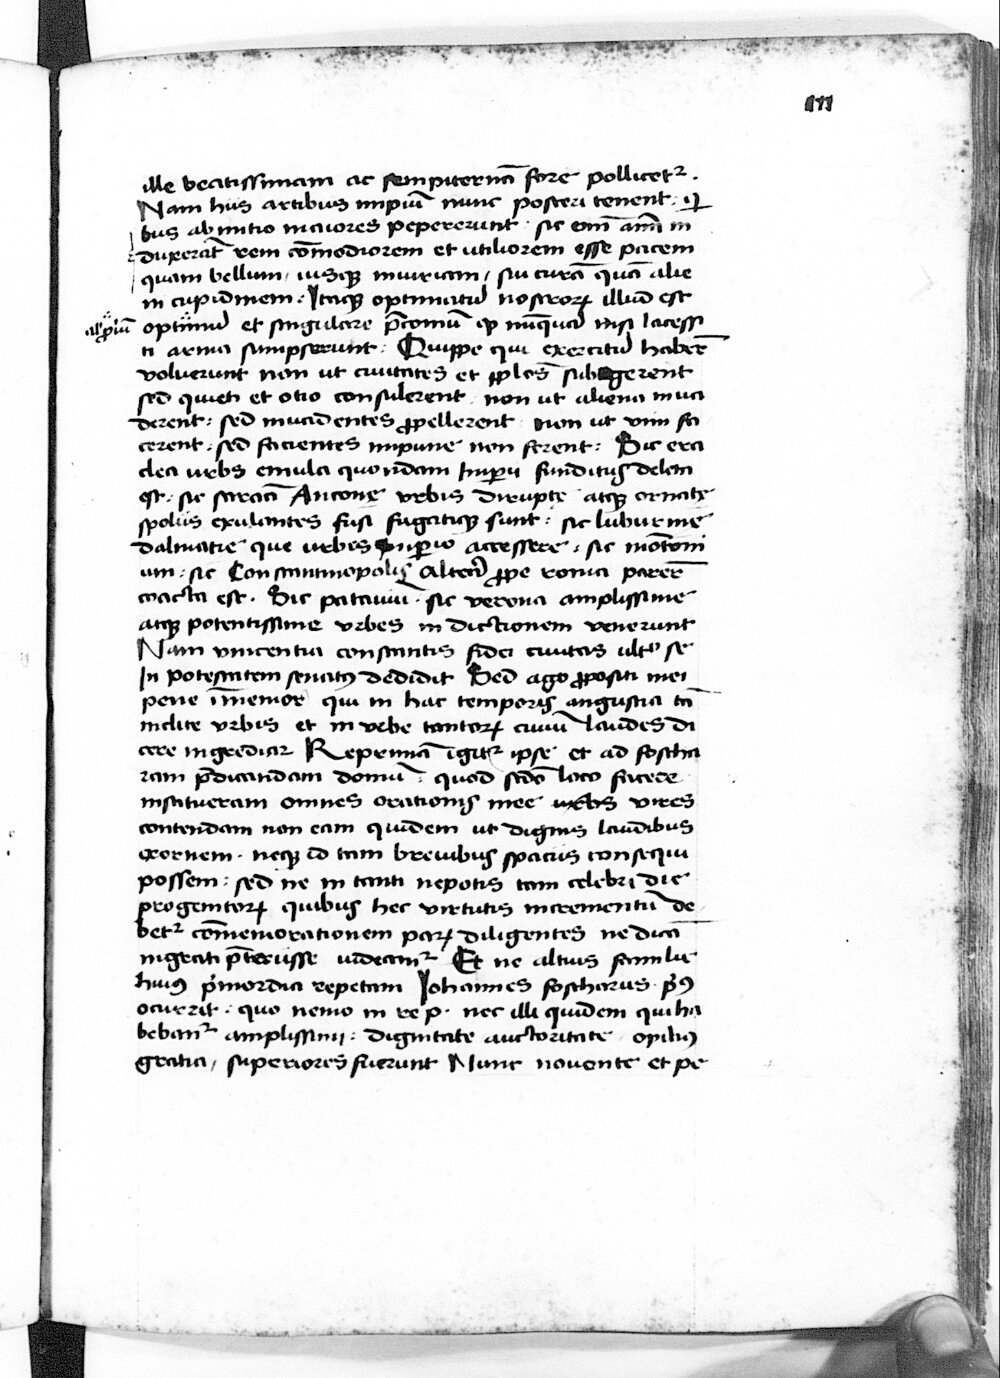 111
ille beatissimam ac sempiternā fore pollicetr.
Nam hiis artibus impiū nunc posteri tenent: q̄
bus ab initio maiores pepererunt. sic enī aīm in
duxerāt rem cōmodiorem et utiliorem esse pacem
quam bellum, iusq; iniuriam, siu curā quā alie
in cupidinem: Itaq; optimatū nostroꝝ illud est
al' ꝓriū
optimū et singulare p̄coniū ꝙ nūquā nisi lacessi
ti arma sumpserunt: Quippe qui exercitū haberē
voluerunt non ut ciuitates et pp̄los subigerent
sed quieti et otio consulerent. non ut aliena inua
derent: sed inuadentes ꝓpellerent non ut vim fa
cerent: sed facientes impune non ferent: Sic era
clea urbs emula quondam Imperii funditus deleta
est: sic saracā Ancone urbis dirupte atq; ornate
spoliis exulantes fusi fugatiq; sunt: sic luburnie
dalmatie que urbes impio accessere: sic
um: sic Constantinopolis altera ꝓpe roma parerē
coacta est. Sic patauiū. sic verona amplissime
atq; potentissime urbes in dictionem venerunt
Nam vincentia constantis fidei ciuitas ultro se
In potestatem senatus dedidit Sed ago ꝓpositi mei
pene īmemor qui in hac temporis angustia tā
inclite urbis et in urbe tantoꝝ ciuiū laudes di
cere ingrediar Repentina igitr ipse et ad foscha
ram p̄dicandam domū: quod scdo loco facere
institueram omnes orationis mee urbs vires
contendam non eam quidem ut dignis laudibus
exornem. neq; id tam breuibus spaciis consequi
possem: sed ne in tanti nepotis tam celebri die
progenitoꝝ quibus hec virtutis incrementū de
betr cōmemorationem paꝝ diligentes ne dicā
ingrati p̄teriisse uideamr Et ne altius familie
huius p̄mordia repetam Iohannes foscharus p̄us
occurrit: quo nemo in re p. nec illi quidem qui ha
bebanr amplissimi: dignitate auctoritate opibus
gratia, superiores fuerunt Nunc nouonte et pe